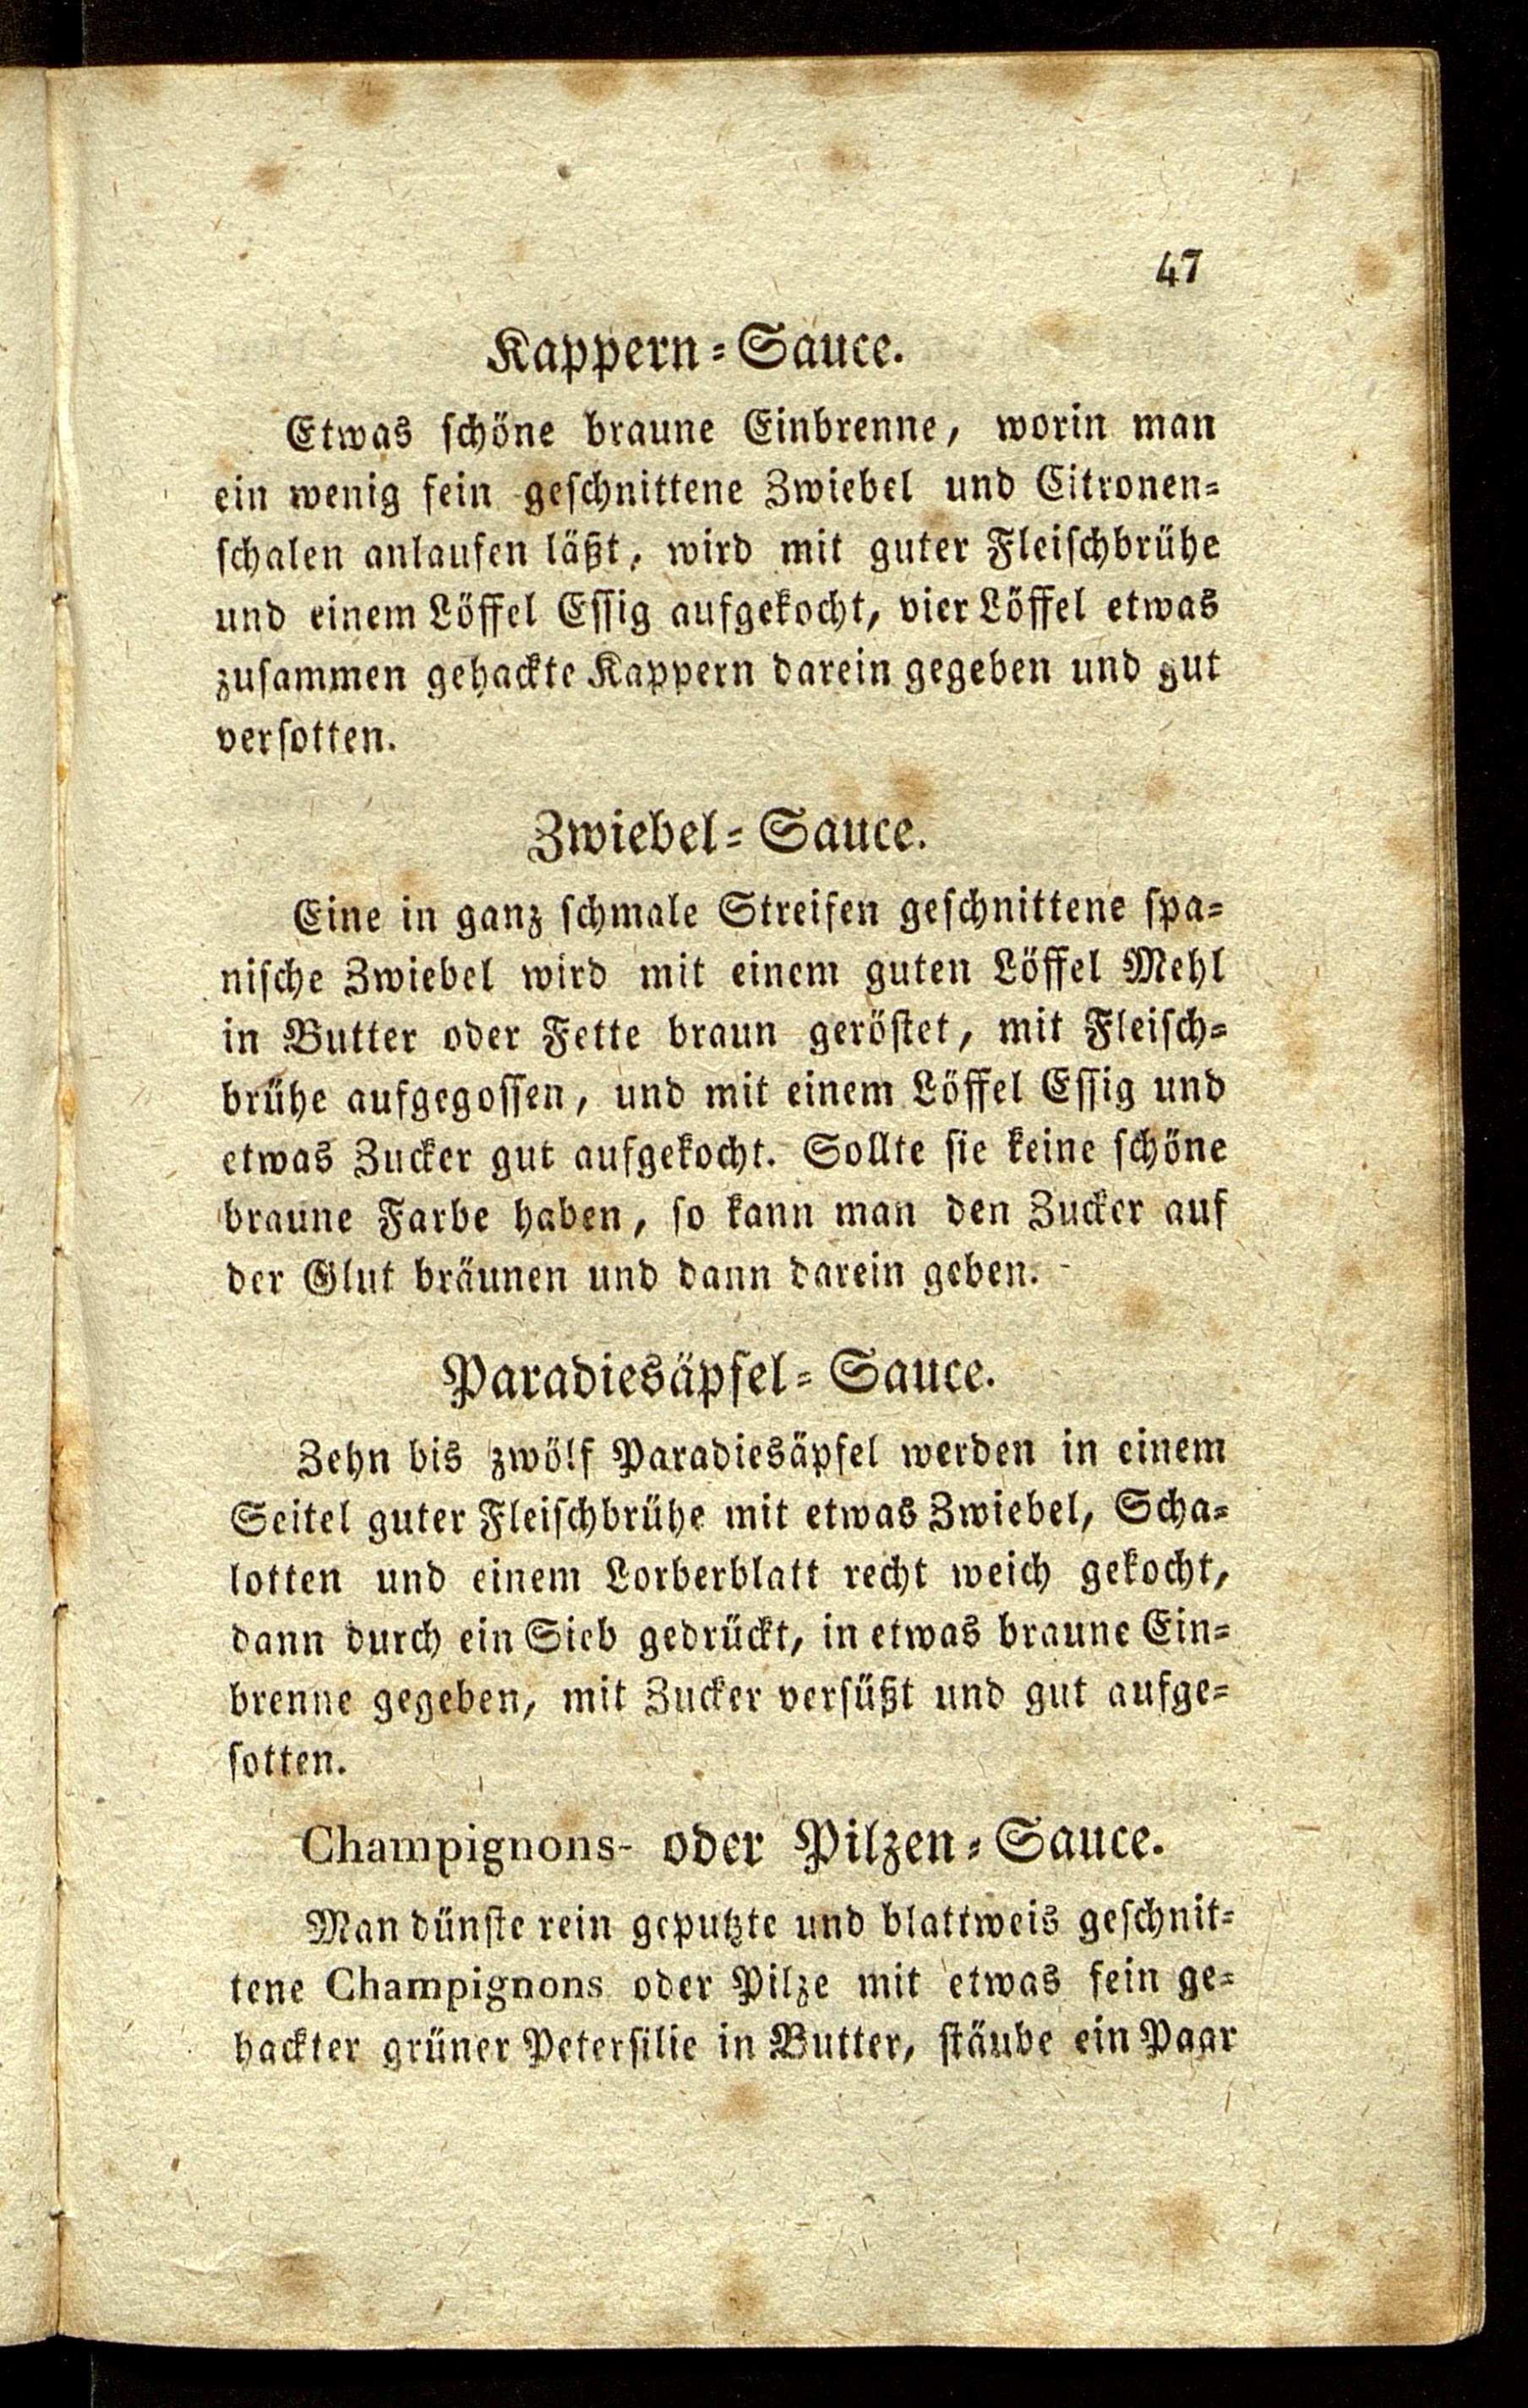 47
Kappern-Sauce.
Etwas schöne braune Einbrenne, worin man
ein wenig fein geschnittene Zwiebel und Citronen-
schalen anlaufen läßt, wird mit guter Fleischbrühe
und einem Löffel Essig aufgekocht, vier Löffel etwas
zusammen gehackte Kappern darein gegeben und gut
versotten.
Zwiebel-Sauce.
Eine in ganz schmale Streifen geschnittene spa-
nische Zwiebel wird mit einem guten Löffel Mehl
in Butter oder Fette braun geröstet, mit Fleisch-
brühe aufgegossen, und mit einem Löffel Essig und
etwas Zucker gut aufgekocht. Sollte sie keine schöne
braune Farbe haben, so kann man den Zucker auf
der Glut bräunen und dann darein geben.
Paradiesäpfel-Sauce.
Zehn bis zwölf Paradiesäpfel werden in einem
Seitel guter Fleischbrühe mit etwas Zwiebel, Scha-
lotten und einem Lorberblatt recht weich gekocht,
dann durch ein Sieb gedrückt, in etwas braune Ein-
brenne gegeben, mit Zucker versüßt und gut aufge-
sotten.
Champignons- oder Pilzen-Sauce.
Man dünste rein geputzte und blattweis geschnit-
tene Champignons oder Pilze mit etwas fein ge-
hackter grüner Petersilie in Butter, stäube ein Paar